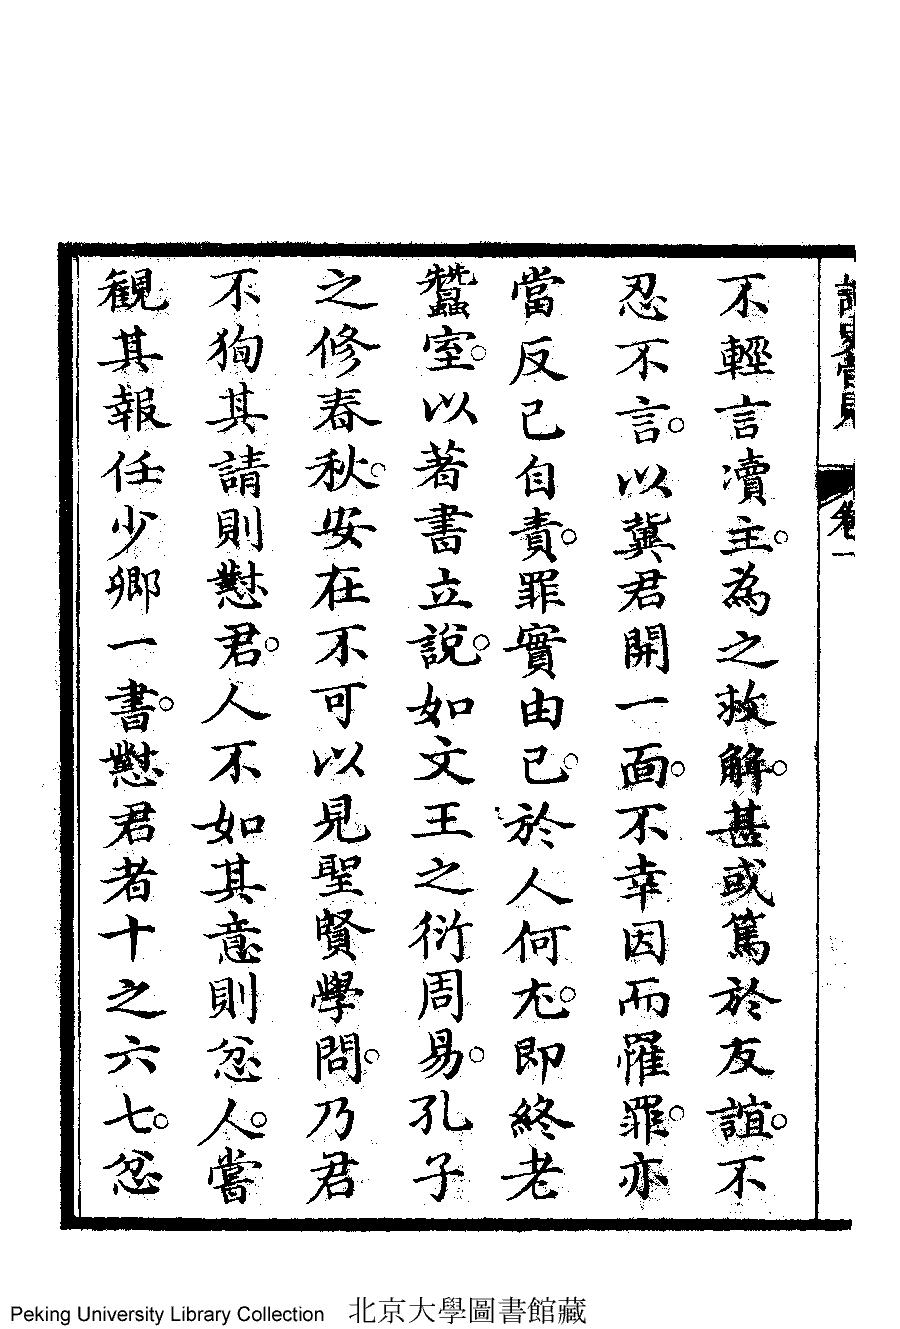 讀史管見 卷一
不輕言瀆主。為之救解。甚或篤於友誼。不
忍不言。以冀君開一面。不幸因而罹罪。亦
當反己自責。罪實由己。於人何尤。即終老
蠶室。以著書立說。如文王之衍周易。孔子
之修春秋。安在不可以見聖賢學問。乃君
不狥其請則懟君。人不如其意則忿人。嘗
觀其報任少卿一書。懟君者十之六七。忿
Peking University Library Collection 北京大學圖書館藏